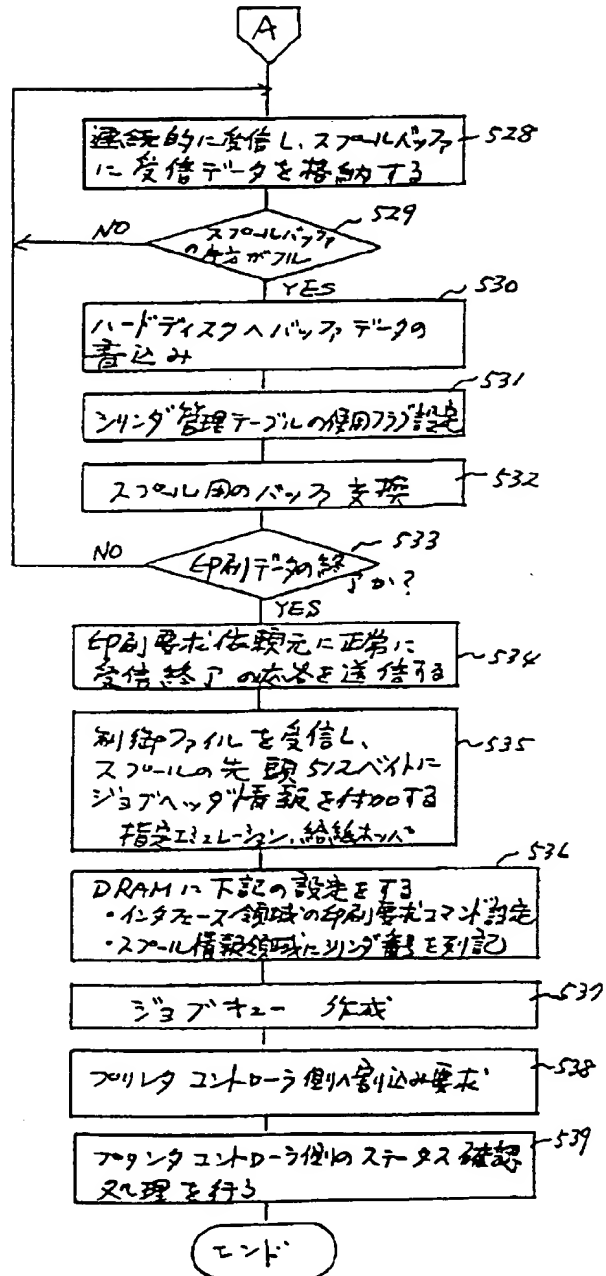 A
連続的に受信し、スプールバッファ
に受信データを格納する
528
529
スプールバッファ
の片方がフル
NO
YES
530
ハードディスクへバッファデータの
書込み
531
シリンダ管理テーブルの使用フラグ設定
スプール用のバッファ交換
532
533
印刷データの終
了か?
NO
YES
印刷要求依頼元に正常に
受信終了の応答を送信する
534
制御ファイルを受信し、
スプールの先頭512バイトに
ジョブヘッダ情報を付加する
指定エミュレーション、給紙ホッパ
535
536
DRAMに下記の設定をする
・インタフェース領域の印刷要求コマンド設定
・スプール情報領域にシリンダ番号を列記
ジョブキュー 作成
537
プリンタコントローラ側へ割り込み要求
538
プリンタコントローラ側のステータス確認
処理を行う
539
エンド